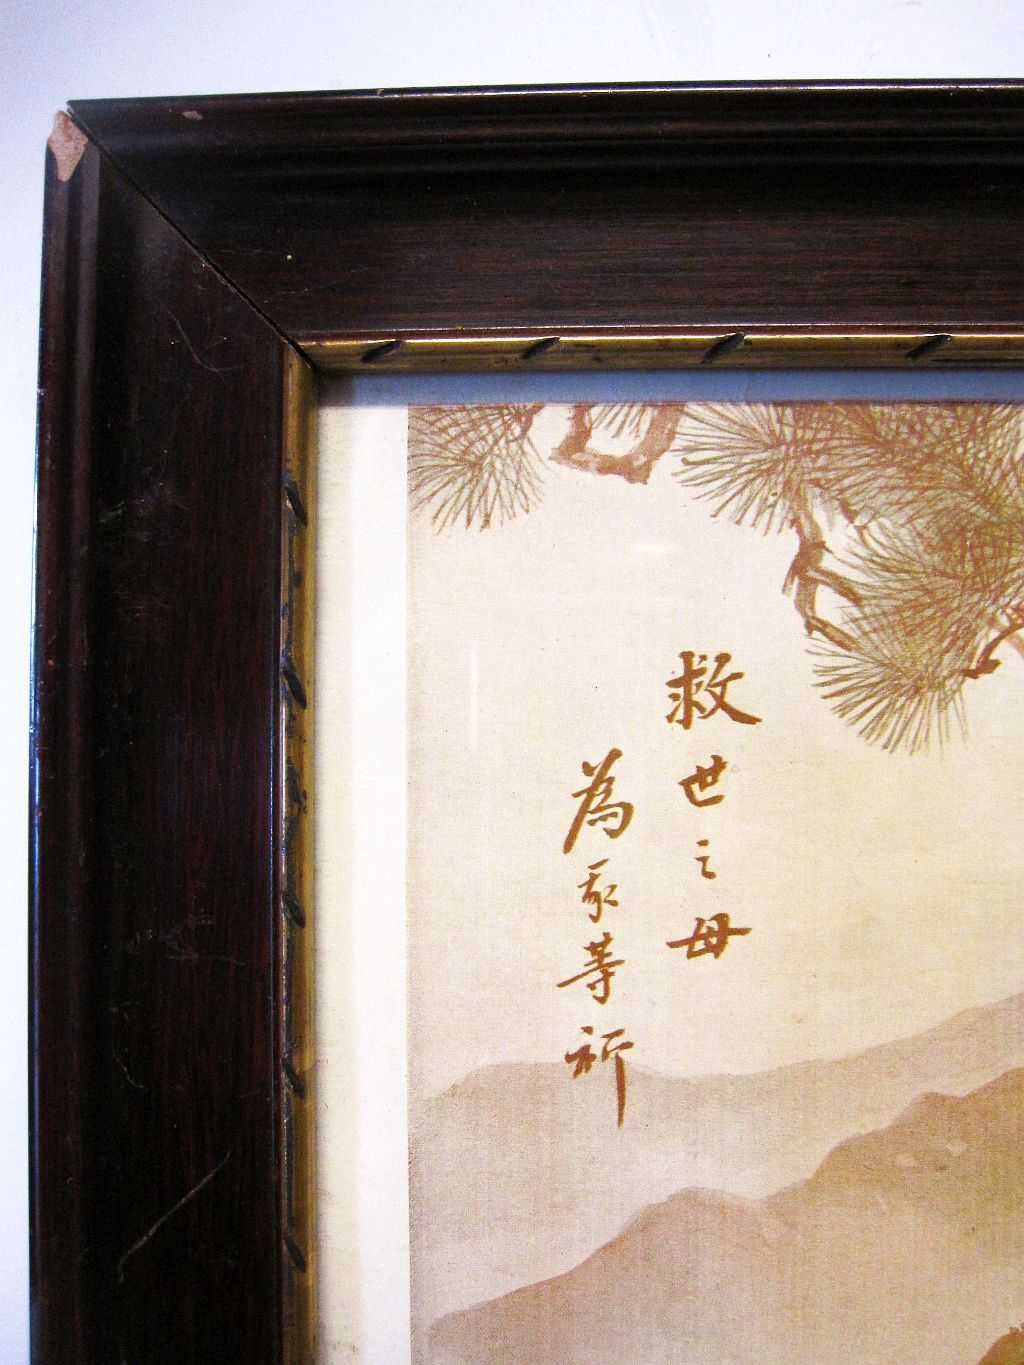 救世之母
為我等祈